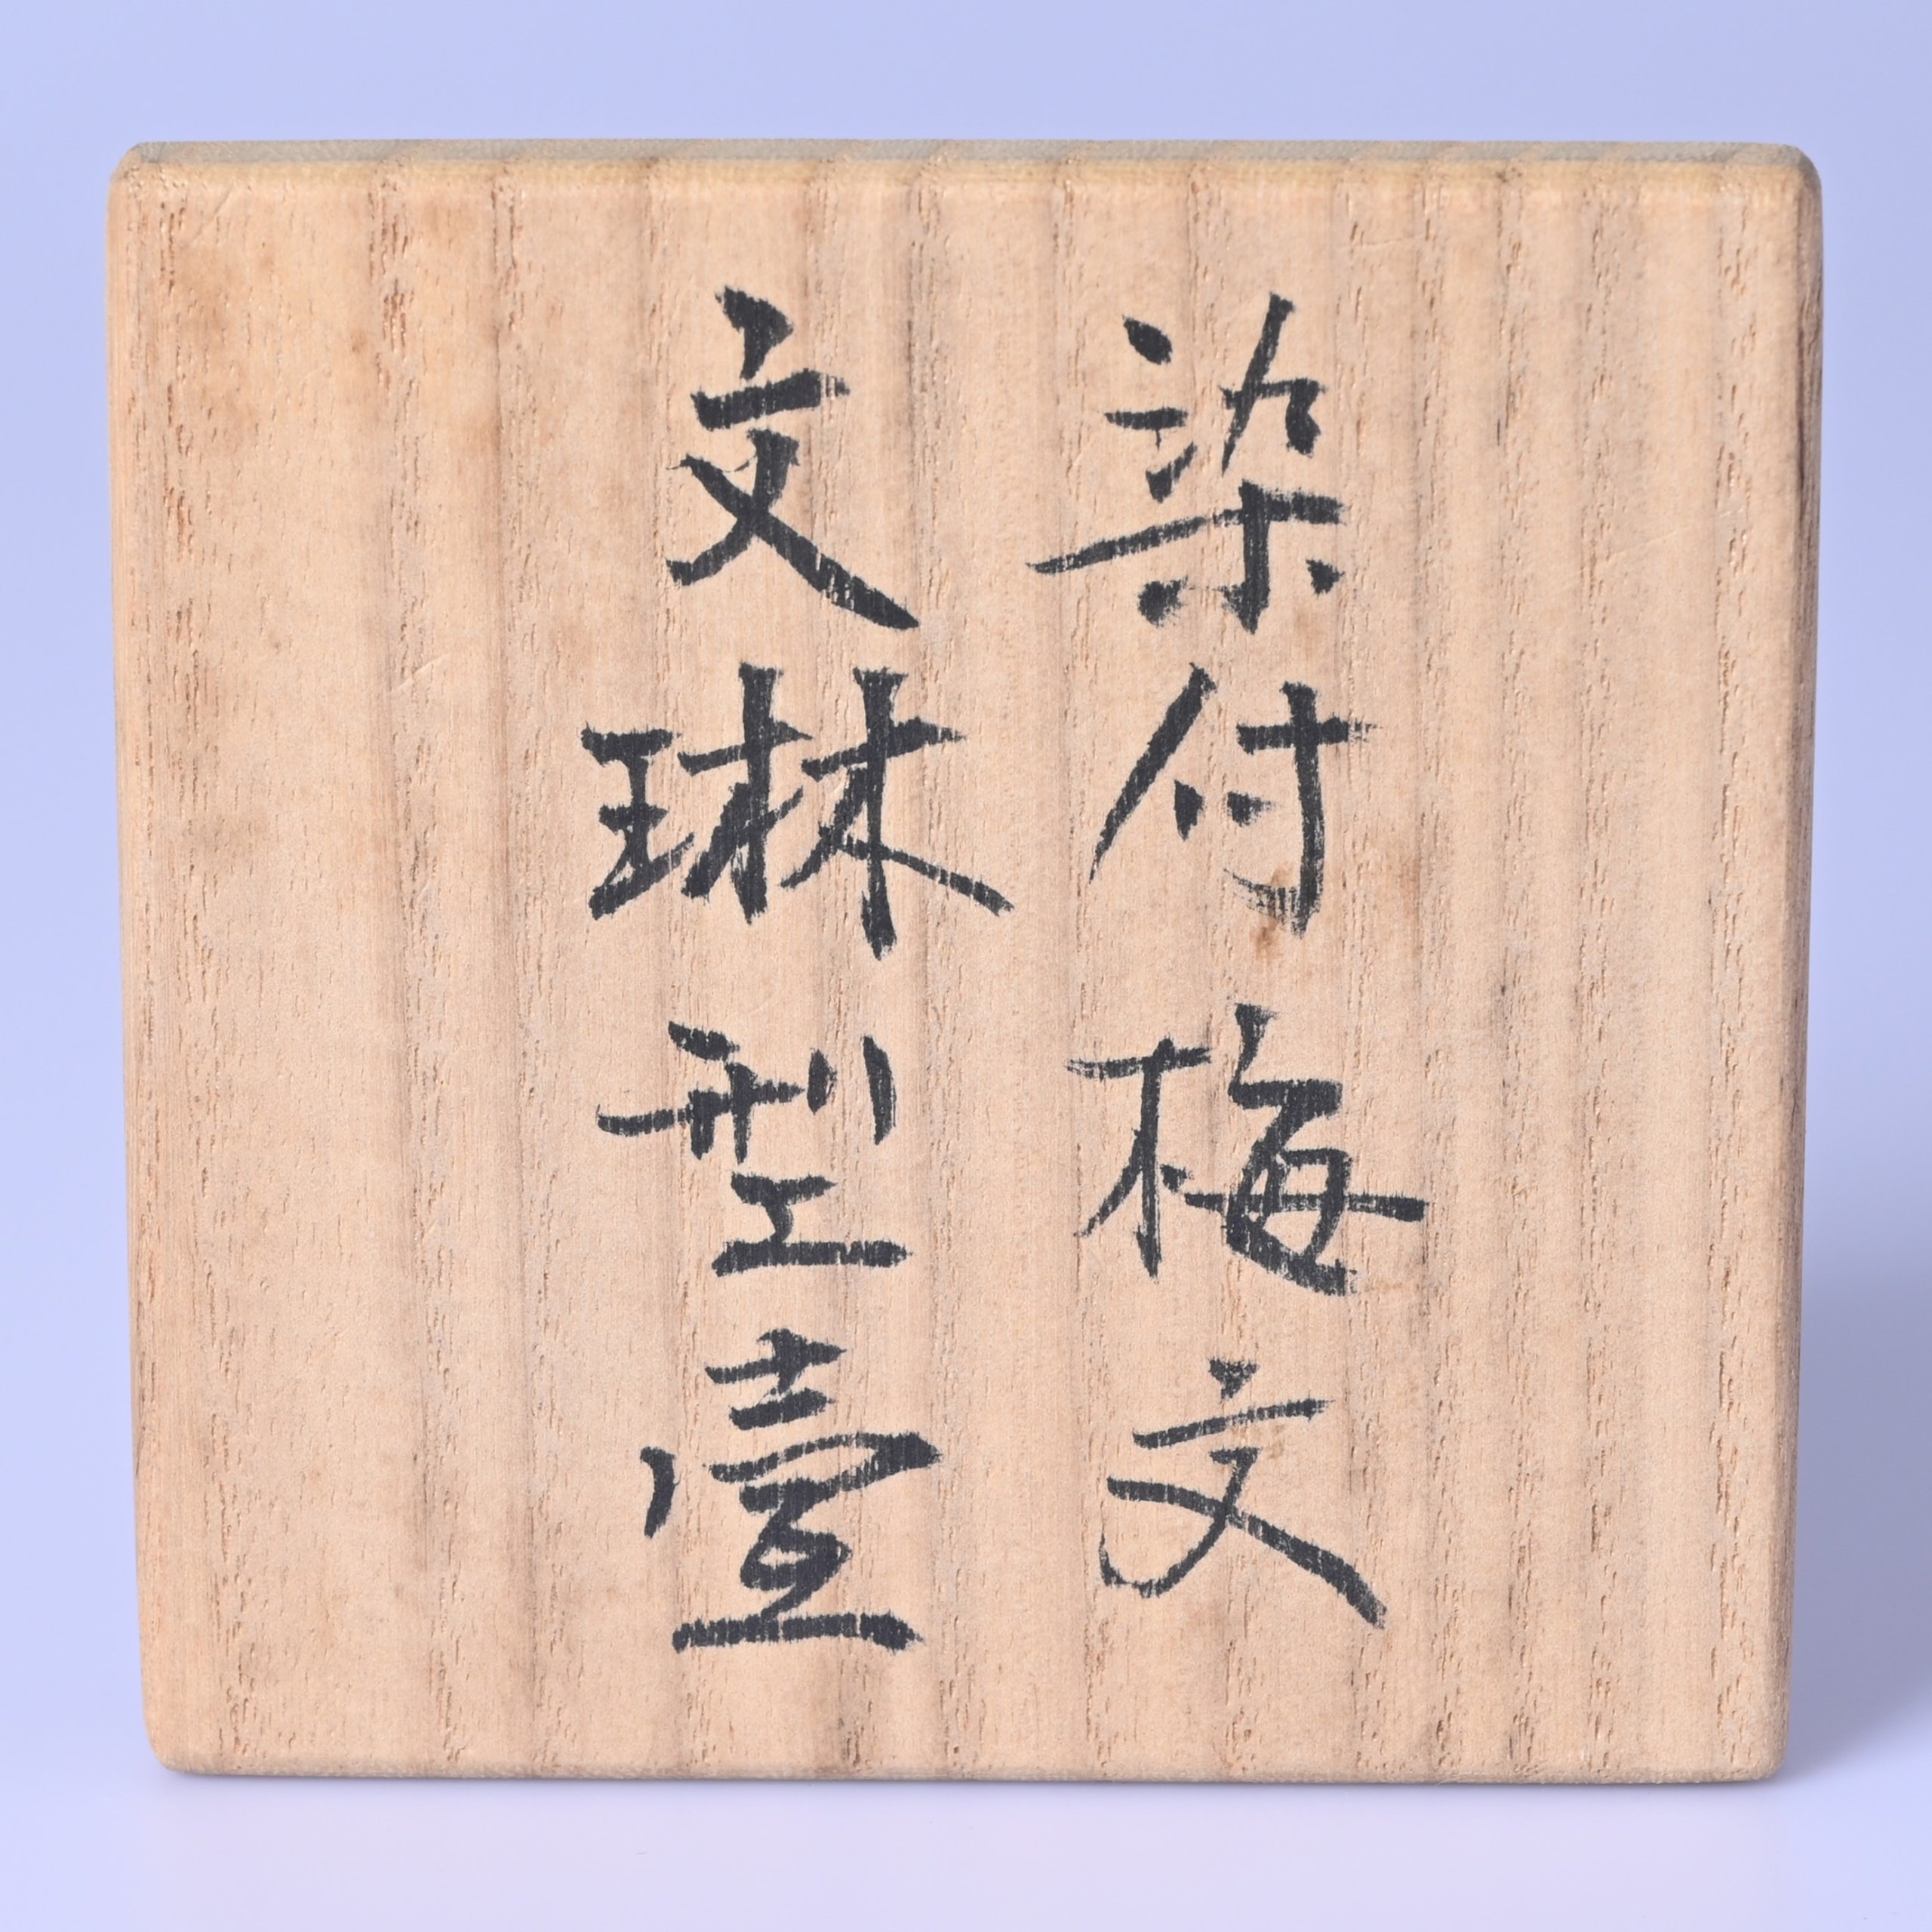 染付梅文
文琳型壹